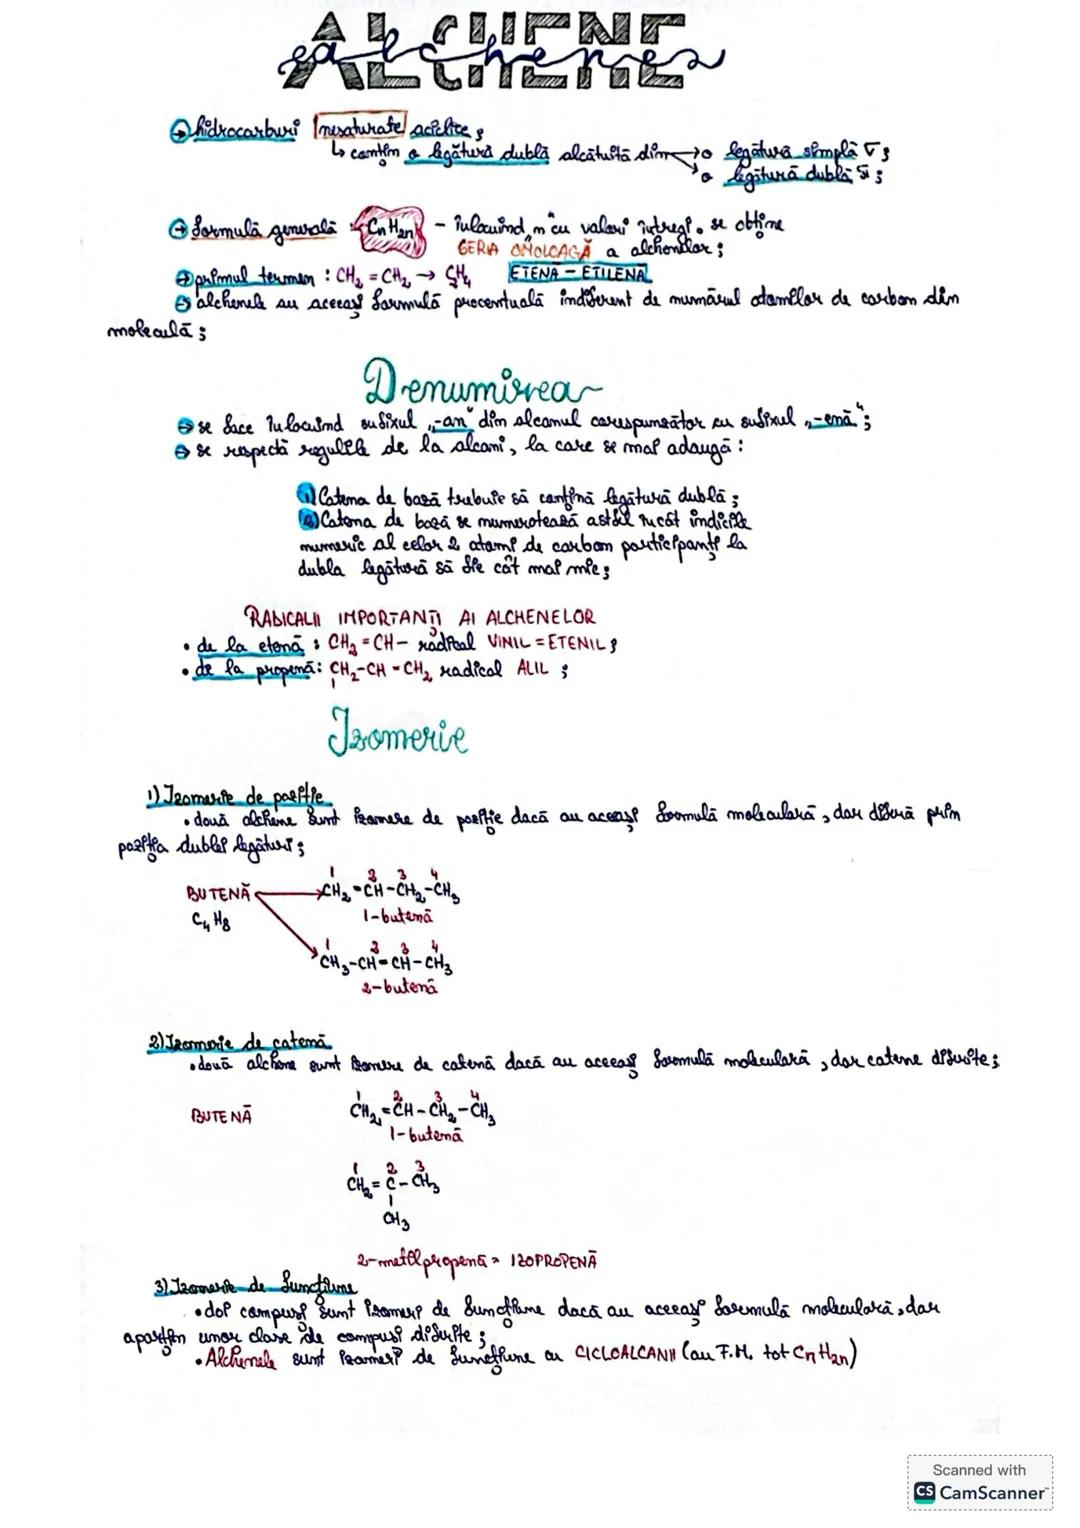 ALCHENE
alchenes
→ hidrocarburi nesaturate aciclice;
↳ conțin o legătură dublă alcătuită din → o legătură simplă σ;
→ o legătură dublă π;
→ formulă generală: CnH2n - înlocuind „n” cu valori întregi se obține
SERIA OMOLOAGĂ a alchenelor;
→ primul termen: CH2 = CH2 → C2H4 ETENĂ - ETILENĂ
→ alchenele au aceeași formulă procentuală indiferent de numărul atomilor de carbon din
moleculă;
Denumirea
→ se face înlocuind sufixul „-an” din alcanul corespunzător cu sufixul „-enă”;
→ se respectă regulile de la alcani, la care se mai adaugă:
1) Catena de bază trebuie să conțină legătură dublă;
2) Catena de bază se numerotează astfel încât indicile
numeric al celor 2 atomi de carbon participanți la
dubla legătură să fie cât mai mic;
RADICALII IMPORTANȚI AI ALCHENELOR
• de la etenă: CH2 = CH- radical VINIL = ETENIL;
• de la propenă: CH2-CH=CH2 radical ALIL;
Izomerie
1) Izomerie de poziție
• două alchene sunt izomere de poziție dacă au aceeași formulă moleculară, dar diferă prin
poziția dublei legături;
1 2 3 4
BUTENĂ → CH2=CH-CH2-CH3
C4H8 1-butenă
1 2 3 4
CH3-CH=CH-CH3
2-butenă
2) Izomerie de catenă
• două alchene sunt izomere de catenă dacă au aceeași formulă moleculară, dar catene diferite;
1 2 3 4
BUTENĂ CH2=CH-CH2-CH3
1-butenă
1 2 3
CH2=C-CH3
CH3
2-metilpropenă = IZOPROPENĂ
3) Izomerie de funcțiune
• doi compuși sunt izomeri de funcțiune dacă au aceeași formulă moleculară, dar
aparțin unor clase de compuși diferite;
• Alchenele sunt izomeri de funcțiune cu CICLOALCANII (au F.M. tot CnH2n)
Scanned with
CS CamScanner